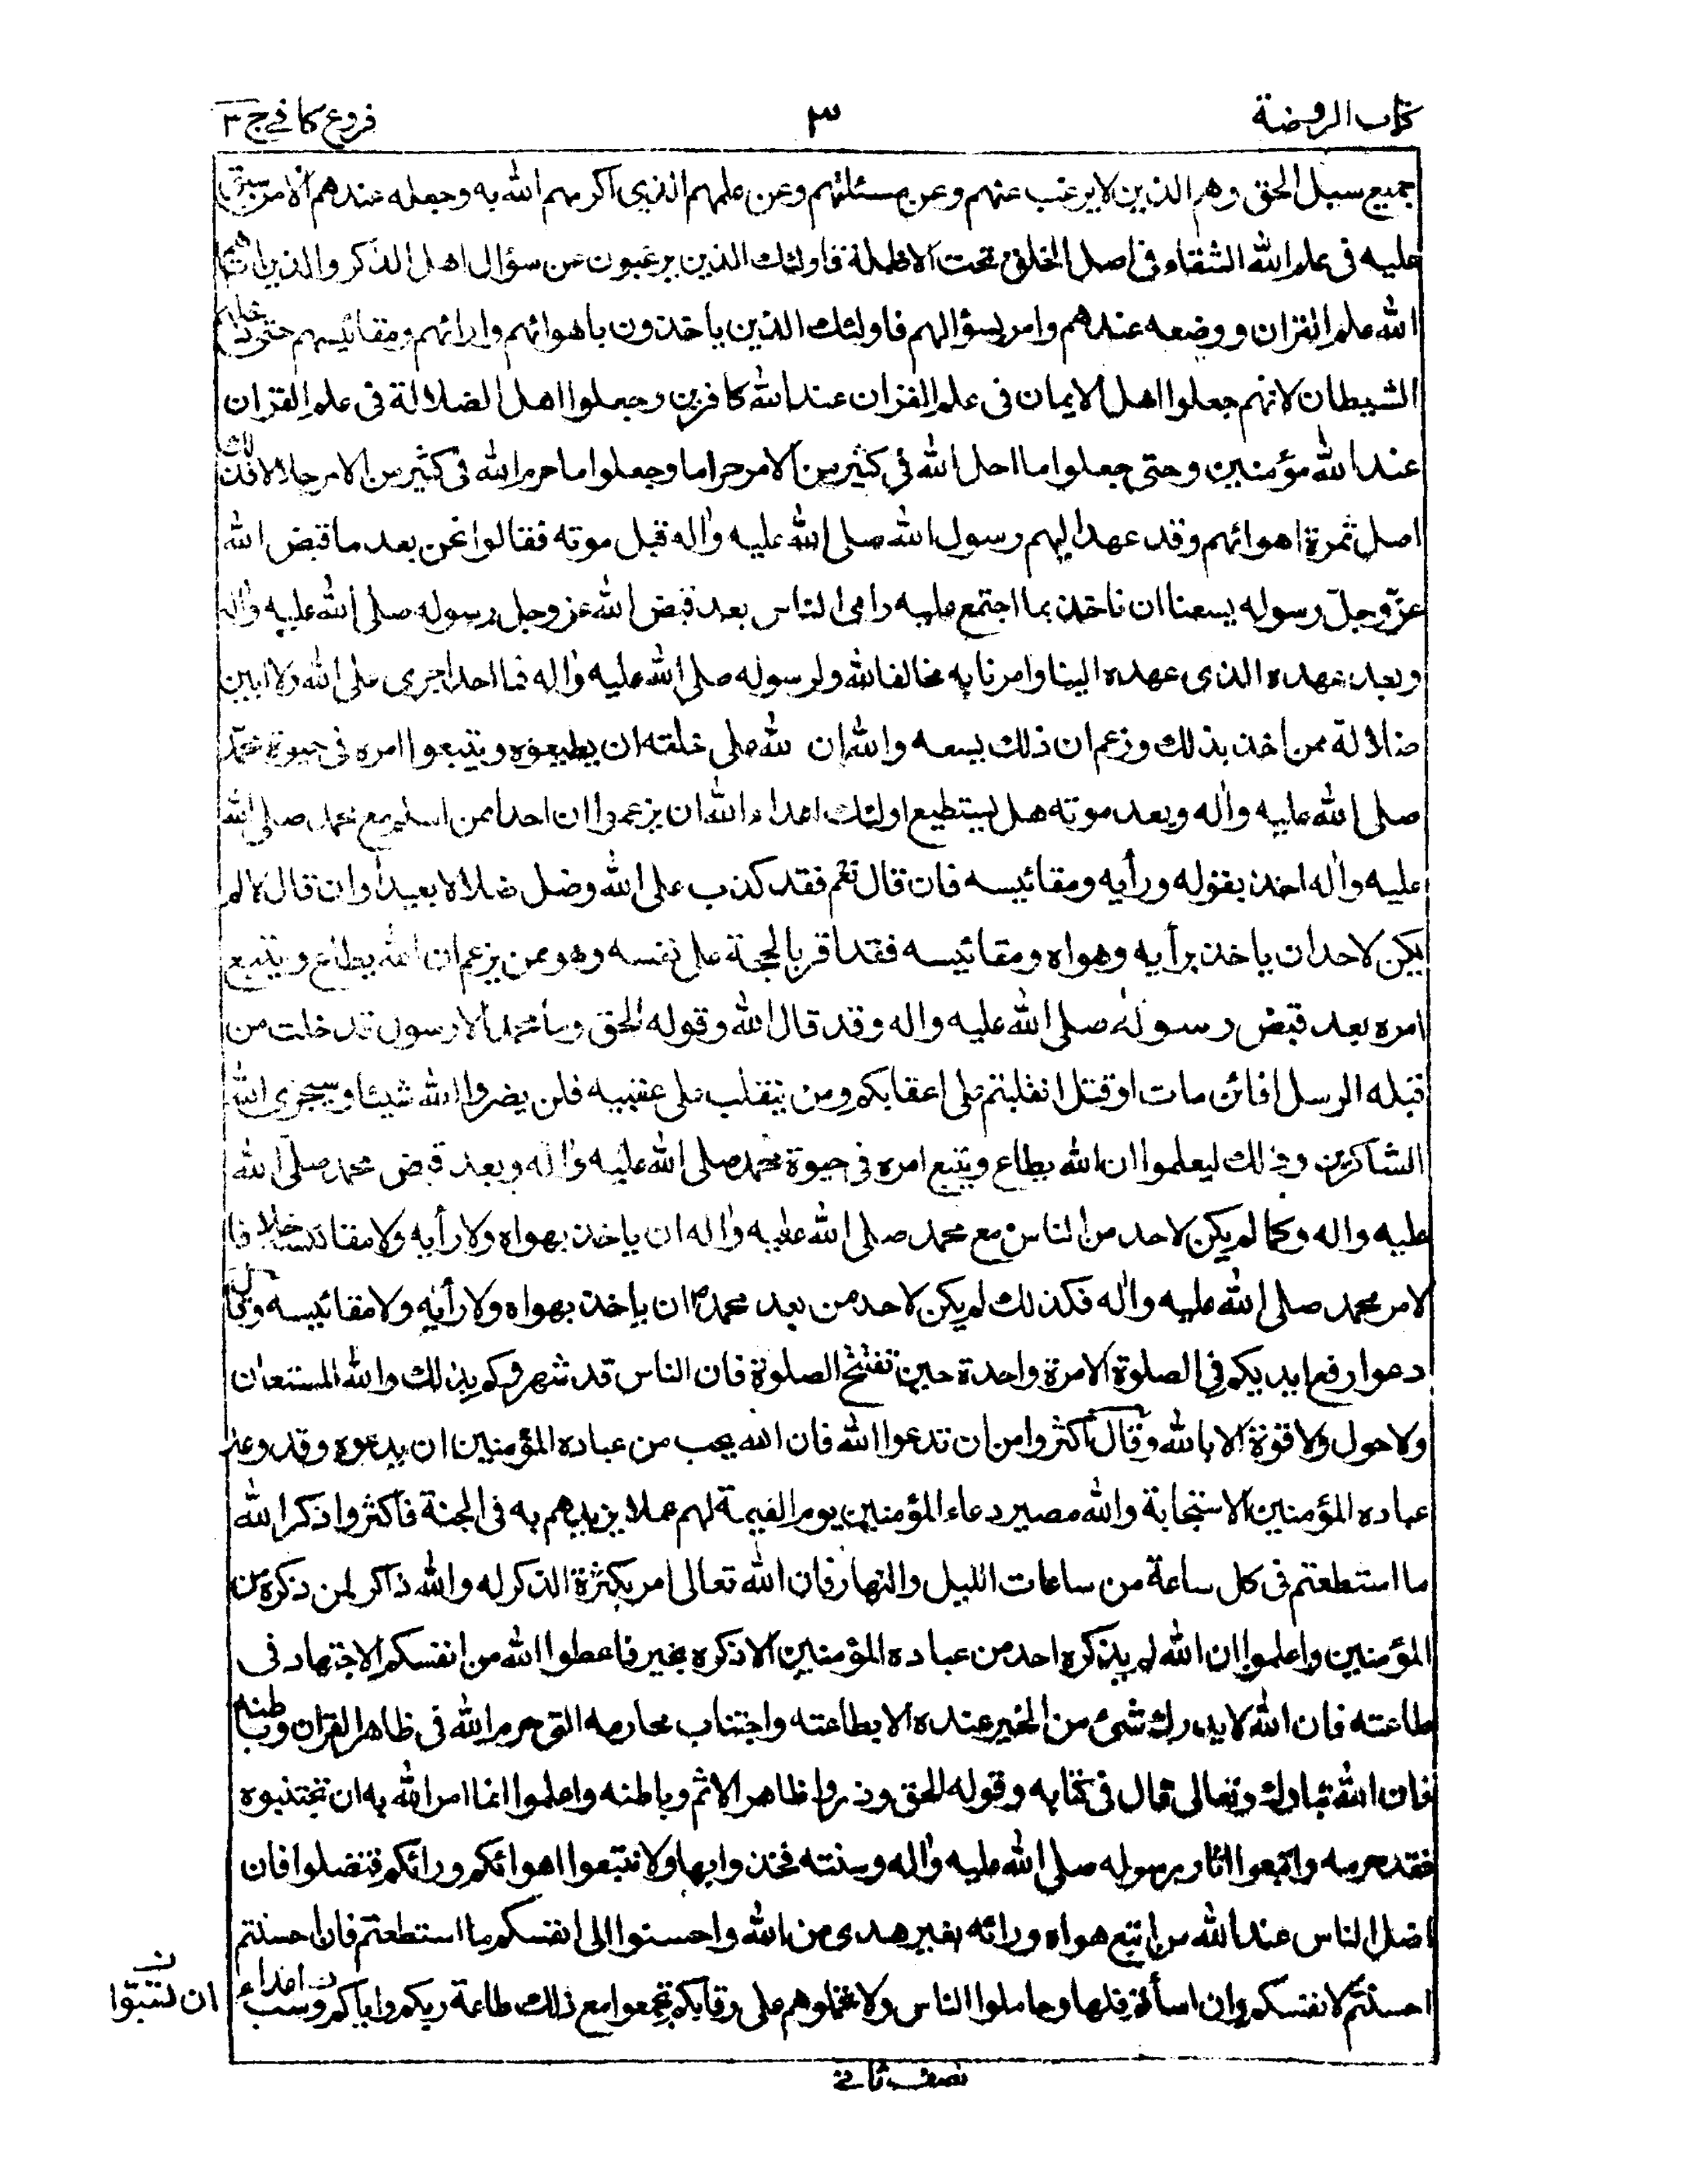 كتاب الروضة
٣
فروع كافي ج ٣
جميع سبل الحق وهم الذين لا يرغب عنهم وعن مسئلتهم وعن علمهم الذي اكرمهم الله به وجعله عندهم الا من سبق
عليه في علم الله الشقاء في اصل الخلق تحت الاظلة فاولئك الذين يرغبون عن سؤال اهل الذكر والذين اتاهم
الله علم القران ووضعه عندهم وامر بسؤالهم فاولئك الذين ياخذون باهوائهم وارائهم ومقائيسهم حتى دخلهم
الشيطان لانهم جعلوا اهل الايمان في علم القران عند الله كافرين وجعلوا اهل الضلالة في علم القران
عند الله مؤمنين وحتى جعلوا ما احل الله في كثير من الامر حراما وجعلوا ما حرم الله في كثير من الامر حلالا فذلك
اصل ثمرة اهوائهم وقد عهد اليهم رسول الله صلى الله عليه واله قبل موته فقالوا نحن بعد ما قبض الله
عز وجل رسوله يسعنا ان ناخذ بما اجتمع عليه راى الناس بعد قبض الله عز وجل رسوله صلى الله عليه واله
وبعد عهده الذى عهده الينا وامرنا به مخالفا لله ولرسوله صلى الله عليه واله فما احد اجرى على الله ولا ابين
ضلالة ممن اخذ بذلك وزعم ان ذلك يسعه والله ان لله على خلقه ان يطيعوه ويتبعوا امره في حيوة محمد
صلى الله عليه واله وبعد موته هل يستطيع اولئك اعداء الله ان يزعموا ان احدا ممن اسلم مع محمد صلى الله
عليه واله اخذ بقوله ورأيه ومقائيسه فان قال نعم فقد كذب على الله وضل ضلالا بعيدا وان قال لا لم
يكن لاحد ان ياخذ برأيه وهواه ومقائيسه فقد اقر بالحجة على نفسه وهو ممن يزعم ان الله يطاع ويتبع
امره بعد قبض رسوله صلى الله عليه واله وقد قال الله وقوله الحق وما محمد الا رسول قد خلت من
قبله الرسل افائن مات او قتل انقلبتم على اعقابكم ومن ينقلب على عقبيه فلن يضر الله شيئا وسيجزى الله
الشاكرين وذلك ليعلموا ان الله يطاع ويتبع امره في حيوة محمد صلى الله عليه واله وبعد قبض محمد صلى الله
عليه واله وكما لم يكن لاحد من الناس مع محمد صلى الله عليه واله ان ياخذ بهواه ولا رأيه ولا مقائيسه خلافا
لامر محمد صلى الله عليه واله فكذلك لم يكن لاحد من بعد محمد ص ان ياخذ بهواه ولا رأيه ولا مقائيسه وقال
دعوا رفع ايديكم في الصلوة الا مرة واحدة حين تفتتح الصلوة فان الناس قد شهروكم بذلك والله المستعان
ولا حول ولا قوة الا بالله وقال اكثروا من ان تدعوا الله فان الله يحب من عباده المؤمنين ان يدعوه وقد وعد
عباده المؤمنين الاستجابة والله مصير دعاء المؤمنين يوم القيمة لهم عملا يزيدهم به في الجنة فاكثروا ذكر الله
ما استطعتم في كل ساعة من ساعات الليل والنهار فان الله تعالى امر بكثرة الذكر له والله ذاكر لمن ذكره من
المؤمنين واعلموا ان الله لم يذكره احد من عباده المؤمنين الا ذكره بخير فاعطوا الله من انفسكم الاجتهاد في
طاعته فان الله لا يدرك شئ من الخير عنده الا بطاعته واجتناب محارمه التى حرم الله في ظاهر القران وباطنه
فان الله تبارك وتعالى قال في كتابه وقوله الحق وذروا ظاهر الاثم وباطنه واعلموا انما امر الله به ان تجتنبوه
فقد حرمه واتبعوا اثار رسوله صلى الله عليه واله وسنته فخذوا بها ولا تتبعوا اهوائكم ورائكم فتضلوا فان
اضل الناس عند الله من اتبع هواه ورائه بغير هدى من الله واحسنوا الى انفسكم ما استطعتم فان احسنتم
احسنتم لانفسكم وان اسأتم فلها وجاملوا الناس ولا تحملوهم على رقابكم تجمعوا مع ذلك طاعة ربكم واياكم وسب اعداء
ان تسبوا
نصف ثاني